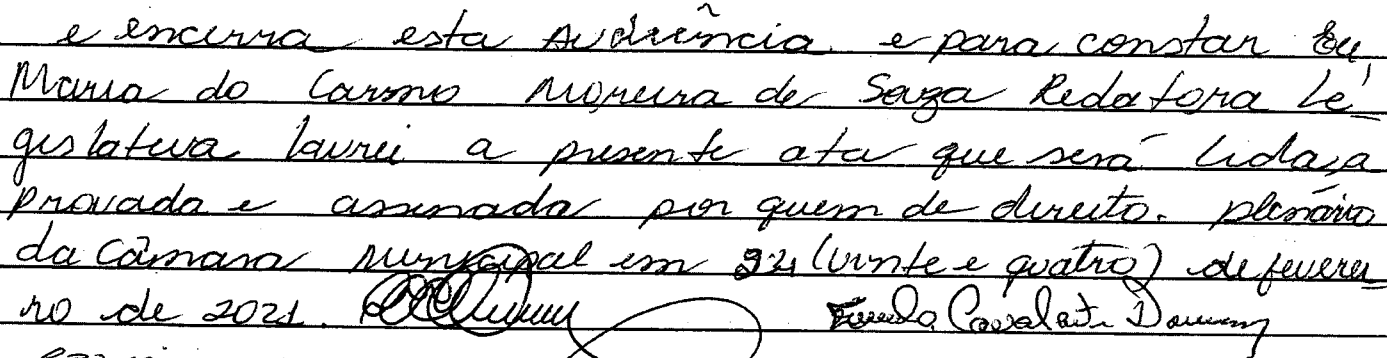 e encerra esta Audiência. e para constar Eu,
Maria do Carmo Moreira de Souza Redatora Le
gislativa lavrei a presente ata que será lida, a
provada e assinada por quem de direito. plenário
da Câmara municipal em 24 (vinte e quatro) de feverei
ro de 2021. Cavalcante